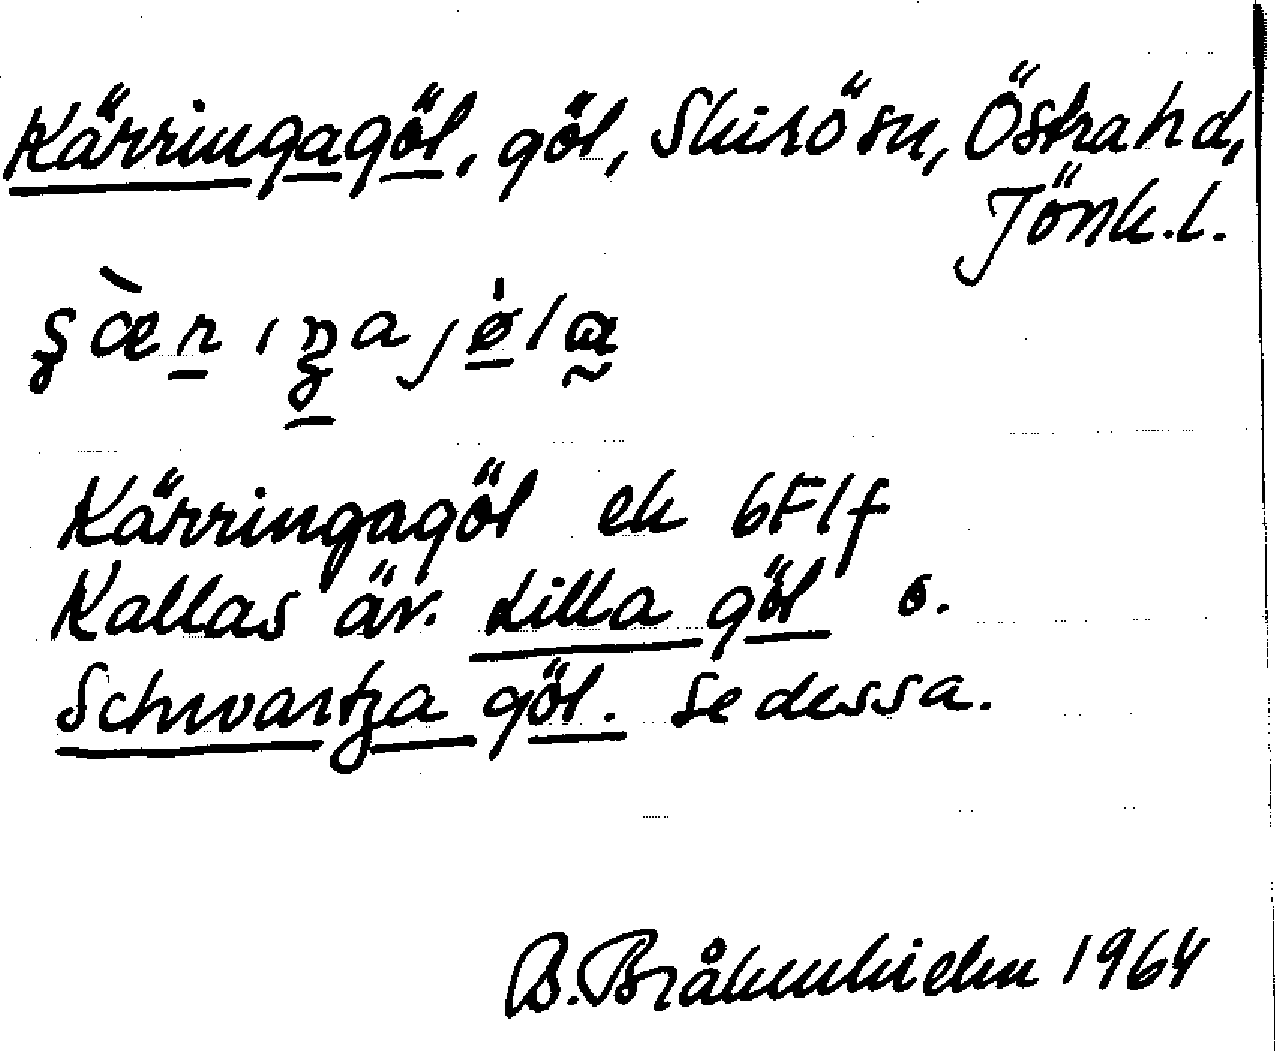 Kärringagöl, göl, Skirö sn, Östra hd,
Jönk.l.
Kärringagöl ek 6F1f
Kallas äv. Lilla göl o.
Schwartza göl. Se dessa.
B. Bråkenhielm 1964